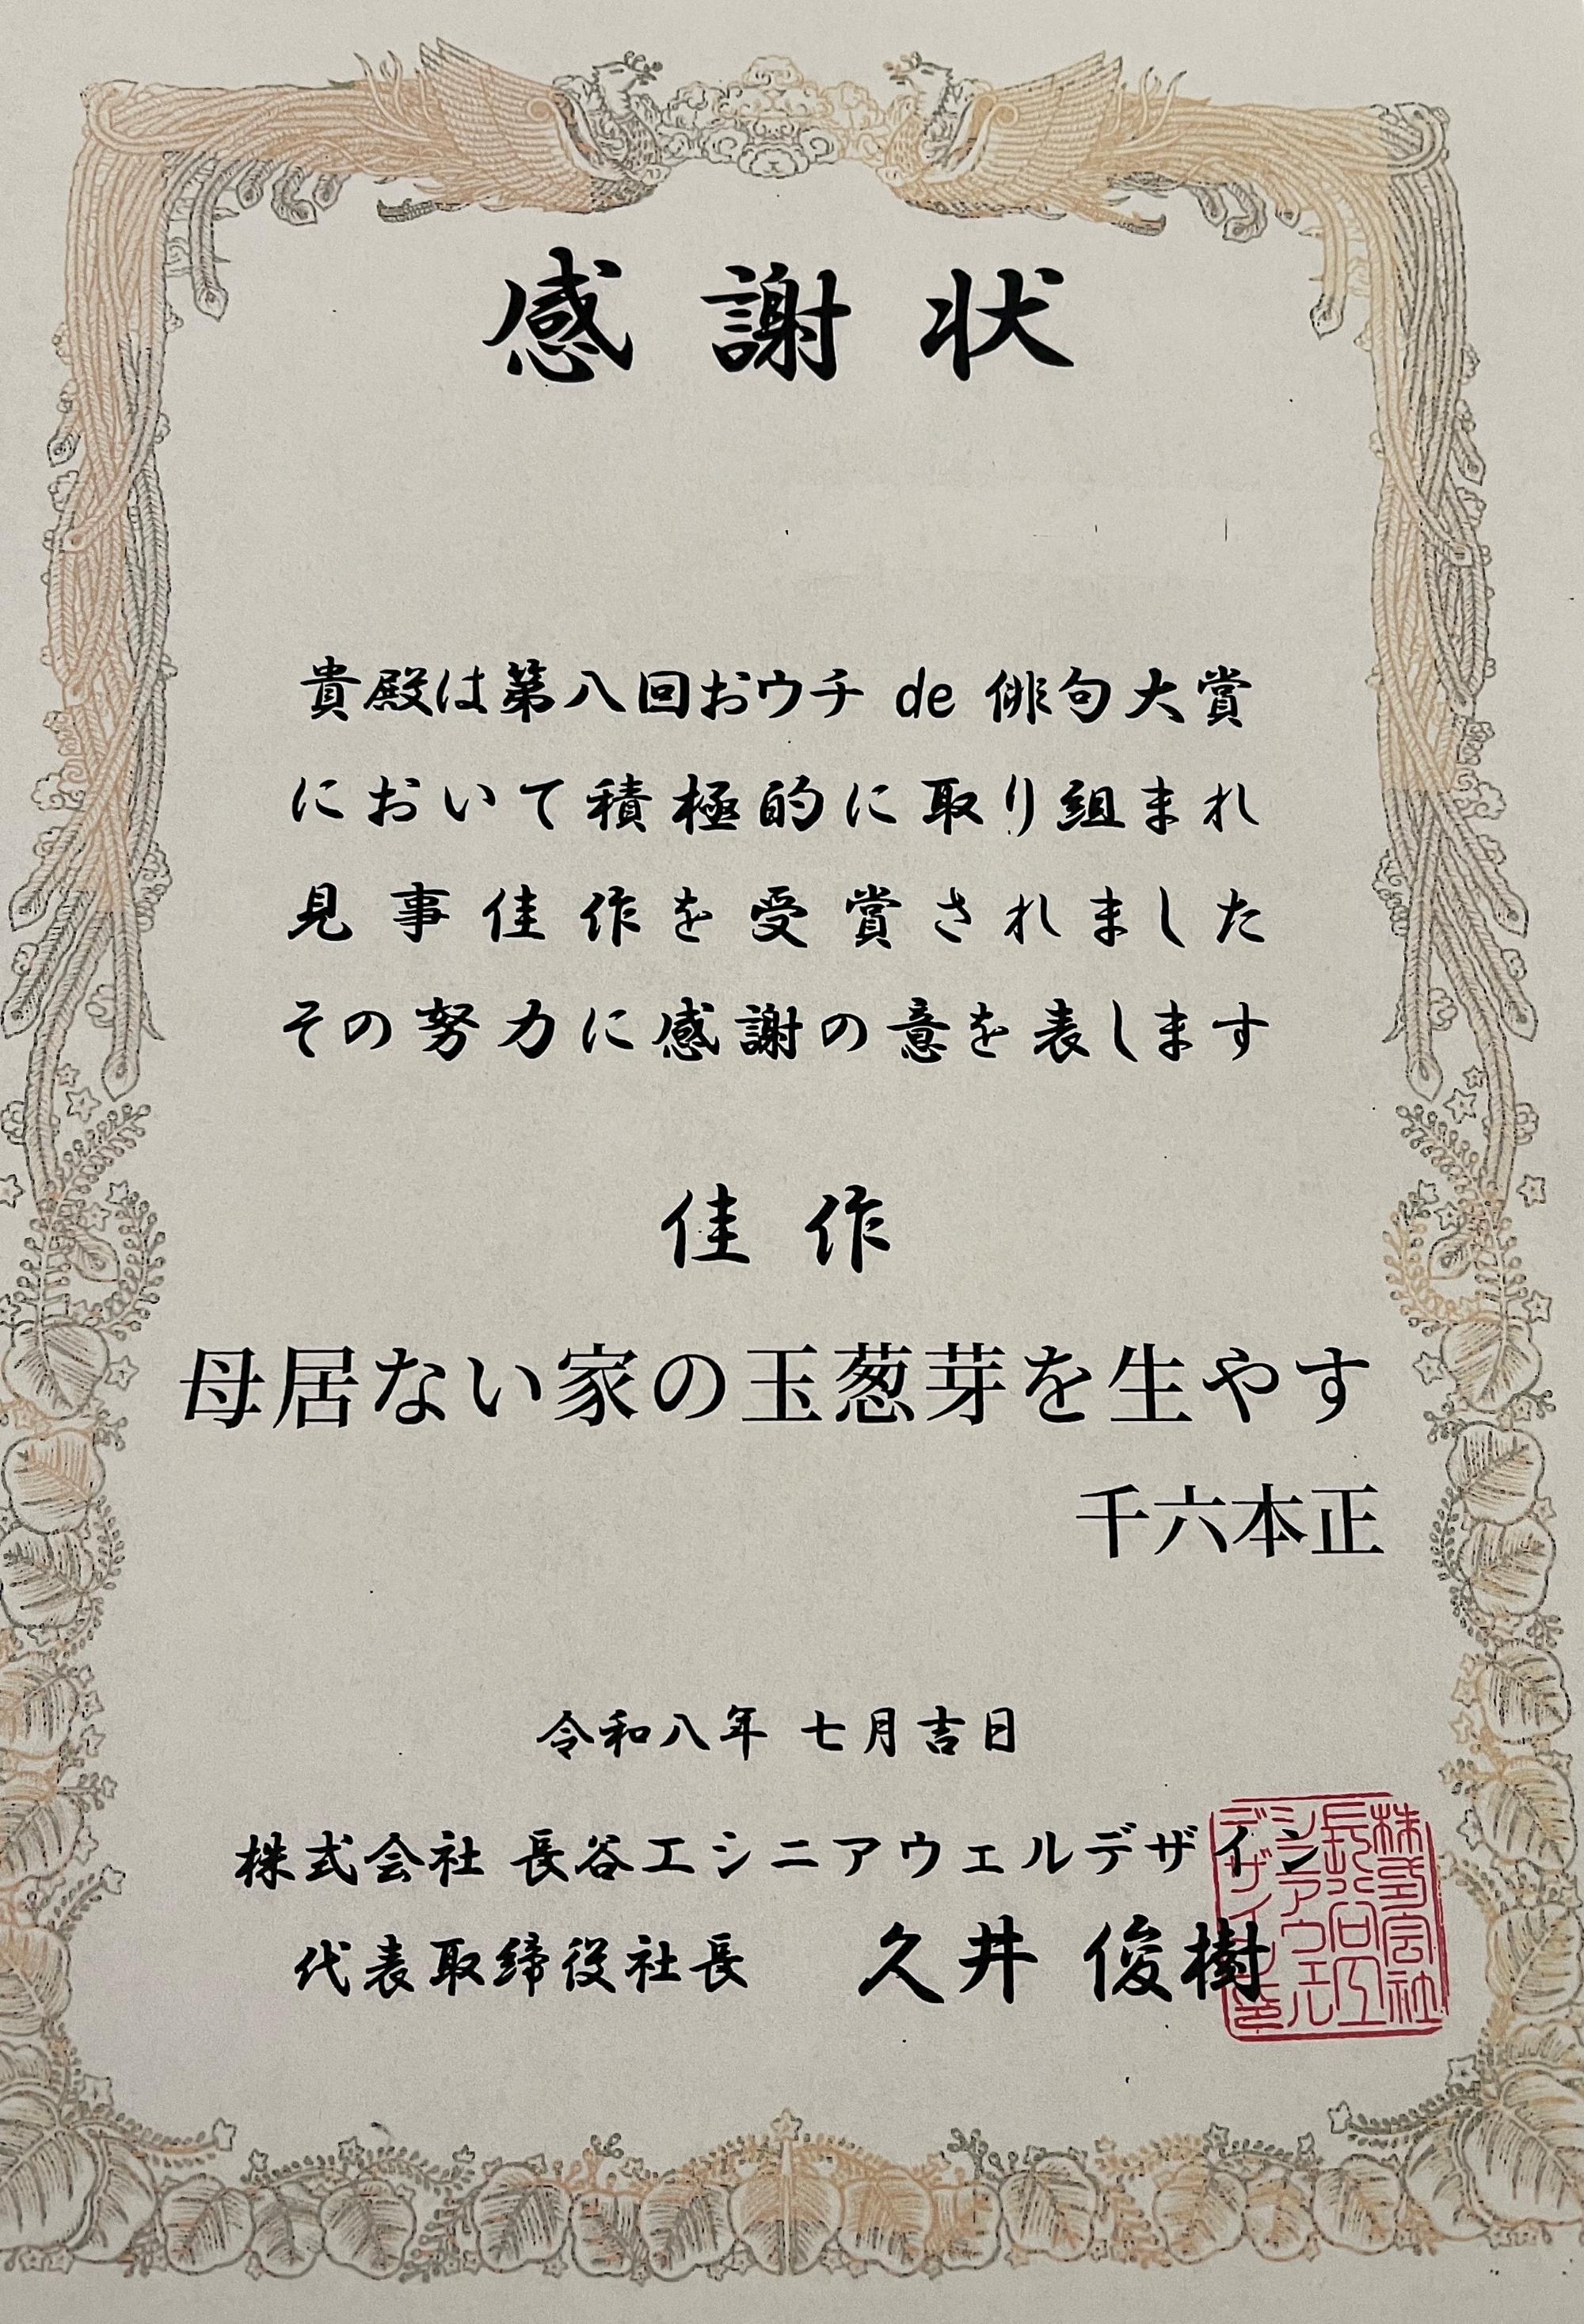 感謝状
貴殿は第八回おウチ de 俳句大賞
において積極的に取り組まれ
見事佳作を受賞されました
その努力に感謝の意を表します
佳作
母居ない家の玉葱芽を生やす
千六本正
令和八年 七月吉日
株式会社 長谷工シニアウェルデザイン
代表取締役社長 久井 俊樹
株式会社
長谷工
シニアウェル
デザイン